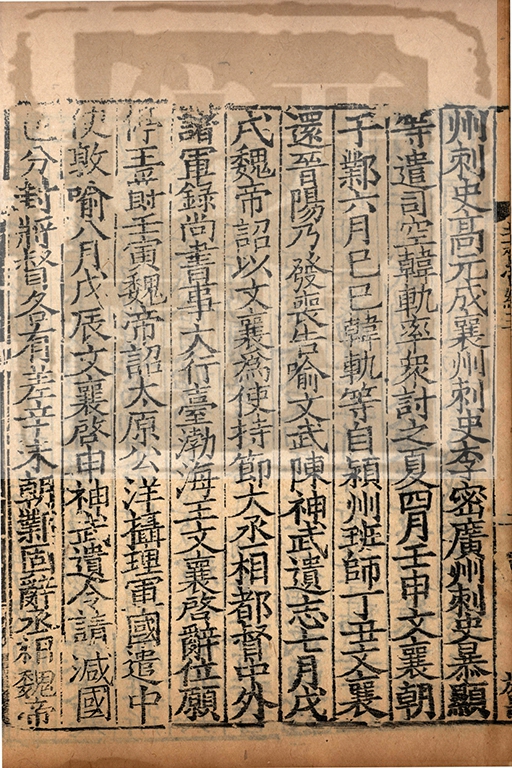 州刺史高元成襄州刺史李密廣州刺史暴顯
等遣司空韓軌率衆討之夏四月壬申文襄朝
于鄴六月己巳韓軌等自潁州班師丁丑文襄
還晉陽乃發喪告喻文武陳神武遺志七月戊
戌魏帝詔以文襄爲使持節大丞相都督中外
諸軍錄尚書事大行臺渤海王文襄啓辭位願
停王爵壬寅魏帝詔太原公洋攝理軍國遣中
使敦喻八月戊辰文襄啓申神武遺令請減國
邑分封將督各有差辛未朝鄴固辭丞相魏帝